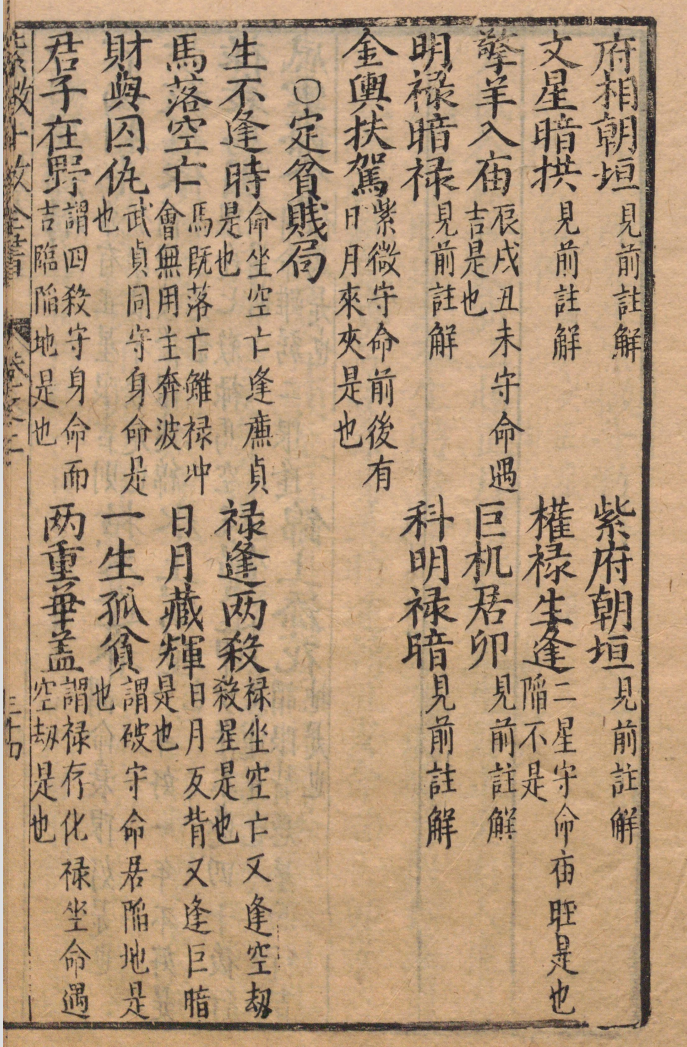 府相朝垣 見前註解 紫府朝垣 見前註解
文星暗拱 見前註解 權禄生逢 二星守命庙旺是也陷不是
擎羊入庙 辰戌丑未守命遇吉是也 巨机居卯 見前註解
明禄暗禄 見前註解 科明禄暗 見前註解
金輿扶駕 紫微守命前後有日月來夾是也
○定貧賎局
生不逢時 命坐空亡逢亷貞是也 禄逢两殺 禄坐空亡又逢空刼殺星是也
馬落空亡 馬既落亡雖禄冲會無用主奔波 日月藏輝 日月反背又逢巨暗是也
財與囚仇 武貞同守身命是也 一生孤貧 謂破守命居陷地是也
君子在野 謂四殺守身命而吉臨陷地是也 两重華盖 謂禄存化禄坐命遇空刼是也
全書 三十四